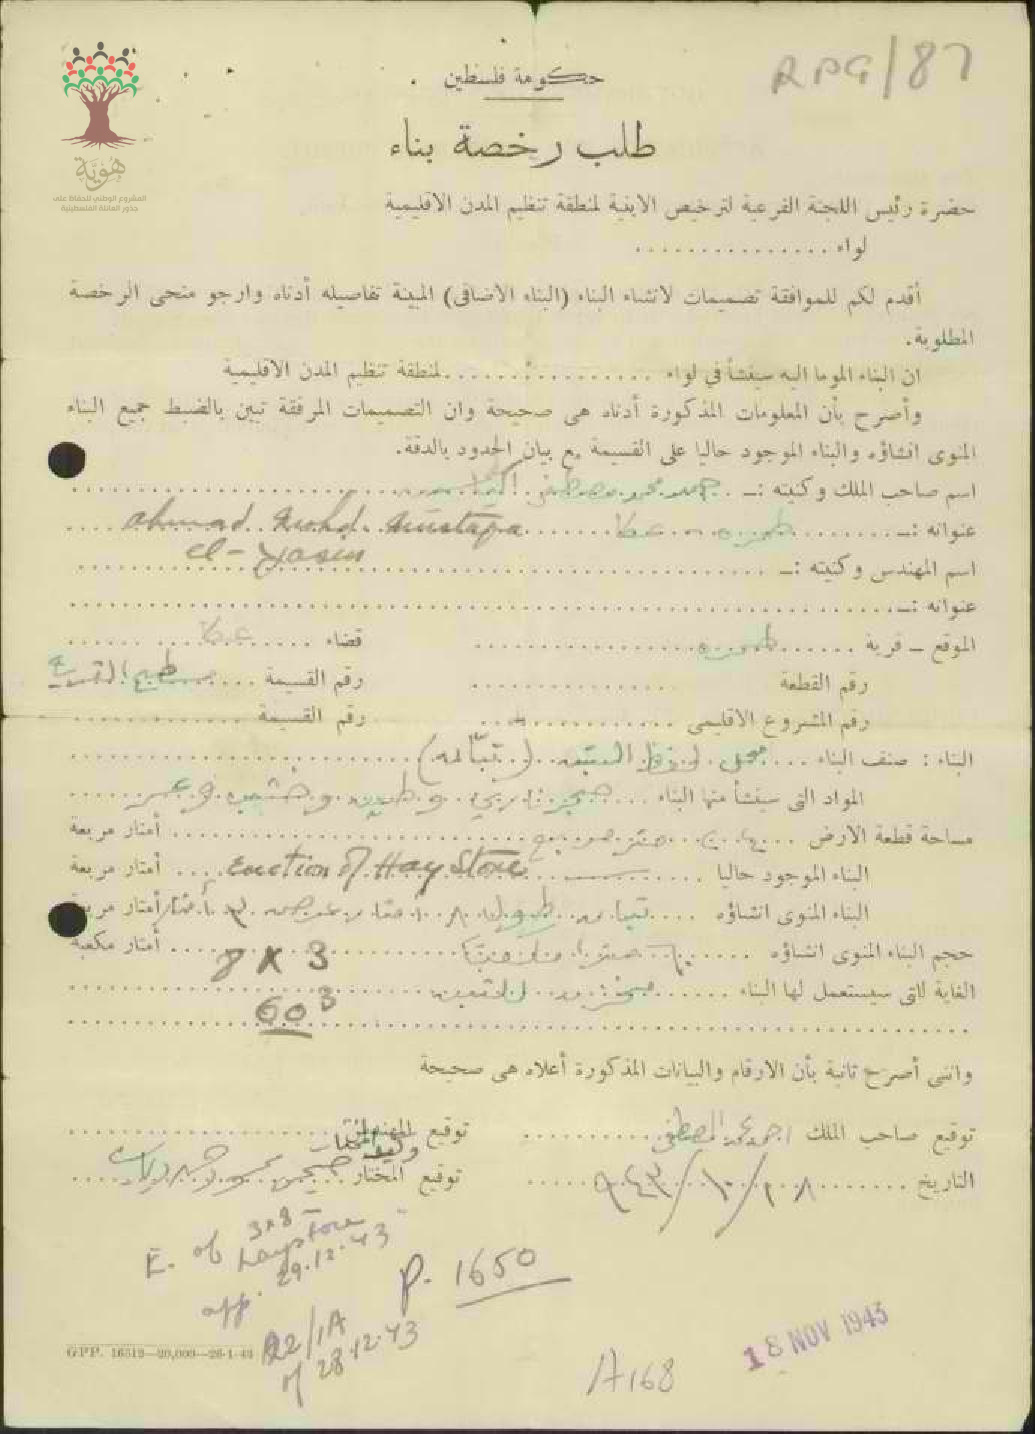 RPG/87
هُوِيَّة
المشروع الوطني للحفاظ على
جذور العائلة الفلسطينية
حكومة فلسطين
طلب رخصة بناء
حضرة رئيس اللجنة الفرعية لترخيص الابنية لمنطقة تنظيم المدن الاقليمية
لواء
أقدم لكم للموافقة تصميمات لانشاء البناء (البناء الاضافى) المبينة تفاصيله أدناه وارجو منحى الرخصة
المطلوبة.
ان البناء الموما اليه سينشأ في لواء لمنطقة تنظيم المدن الاقليمية
وأصرح بأن المعلومات المذكورة أدناه هى صحيحة وان التصميمات المرفقة تبين بالضبط جميع البناء
المنوى انشاؤه والبناء الموجود حاليا على القسيمة مع بيان الحدود بالدقة.
اسم صاحب الملك وكنيته :ـ احمد محمد مصطفى الياسين
عنوانه :ـ طمره عكا Ahmad Mohd. Mustapa
el-Yasin
اسم المهندس وكنيته :ـ
عنوانه :ـ
الموقع ـ قرية طمره قضاء عكا
رقم القطعة رقم القسيمة سطيح القرية
رقم المشروع الاقليمى رقم القسيمة
البناء : صنف البناء محل لوضع التبن (تبّانه)
المواد التى سينشأ منها البناء حجر وطين وخشب
مساحة قطعة الارض متر مربع أمتار مربعة
البناء الموجود حاليا Erection of Hay Store أمتار مربعة
البناء المنوى انشاؤه طول ٨ عرض ٣ أمتار أمتار مربعة
حجم البناء المنوى انشاؤه ٦٠ أمتار مكعبة
8 x 3
الغاية التى سيستعمل لها البناء للتبن
60 3
وانى أصرح ثانية بأن الارقام والبيانات المذكورة أعلاه هى صحيحة
توقيع صاحب الملك احمد محمد المصطفى توقيع المهندس
التاريخ ٢٨/١٠/٩٤٣ توقيع المختار
E. of 3x8
Haystore
app. 29.12.43
P. 1650
R2/1A
of 28.12.43
GPP. 16512—20,000—26-1-43
A168
18 NOV 1943